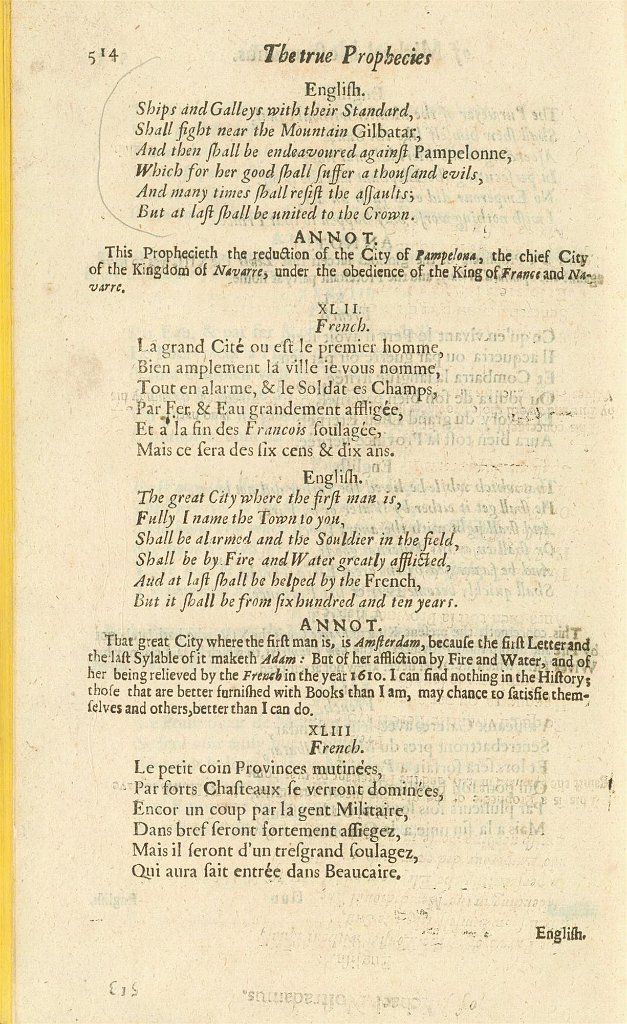 514 The true Prophecies
Engliſh.
Ships and Galleys with their Standard,
Shall fight near the Mountain Gilbatar,
And then ſhall be endeavoured againſt Pampelonne,
Which for her good ſhall ſuffer a thouſand evils,
And many times ſhall reſiſt the aſſaults;
But at laſt ſhall be united to the Crown.
ANNOT.
This Prophecieth the reduction of the City of Pampelona, the chief City
of the Kingdom of Navarre, under the obedience of the King of France and Na-
varre.
XLII.
French.
La grand Cité ou eſt le premier homme,
Bien amplement la ville ie vous nomme,
Tout en alarme, & le Soldat es Champs,
Par Fer & Eau grandement affligée,
Et a la fin des Francois ſoulagée,
Mais ce ſera des ſix cens & dix ans.
Engliſh.
The great City where the firſt man is,
Fully I name the Town to you,
Shall be alarmed and the Souldier in the field,
Shall be by Fire and Water greatly afflicted,
Aud at laſt ſhall be helped by the French,
But it ſhall be from ſix hundred and ten years.
ANNOT.
That great City where the firſt man is, is Amſterdam, becauſe the firſt Letter and
the laſt Sylable of it maketh Adam: But of her affliction by Fire and Water, and of
her being relieved by the French in the year 1610. I can find nothing in the Hiſtory;
thoſe that are better furniſhed with Books than I am, may chance to ſatisfie them-
ſelves and others, better than I can do.
XLIII
French.
Le petit coin Provinces mutinées,
Par forts Chaſteaux ſe verront dominées,
Encor un coup par la gent Militaire,
Dans bref ſeront fortement aſſiegez,
Mais il ſeront d'un treſgrand ſoulagez,
Qui aura fait entrée dans Beaucaire.
Engliſh.